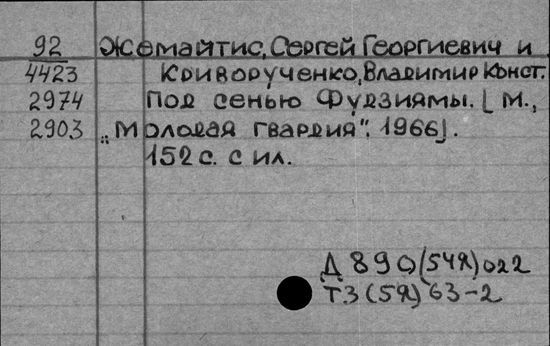 92 Жемайтис, Сергей Георгиевич и
4423 Криворученко, Владимир Конст.
2974 Под сенью Фудзиямы. [М.,
2903 „Молодая гвардия", 1966].
152 с. с ил.
Д 890(54Я)022
Т3(5Я)63-2